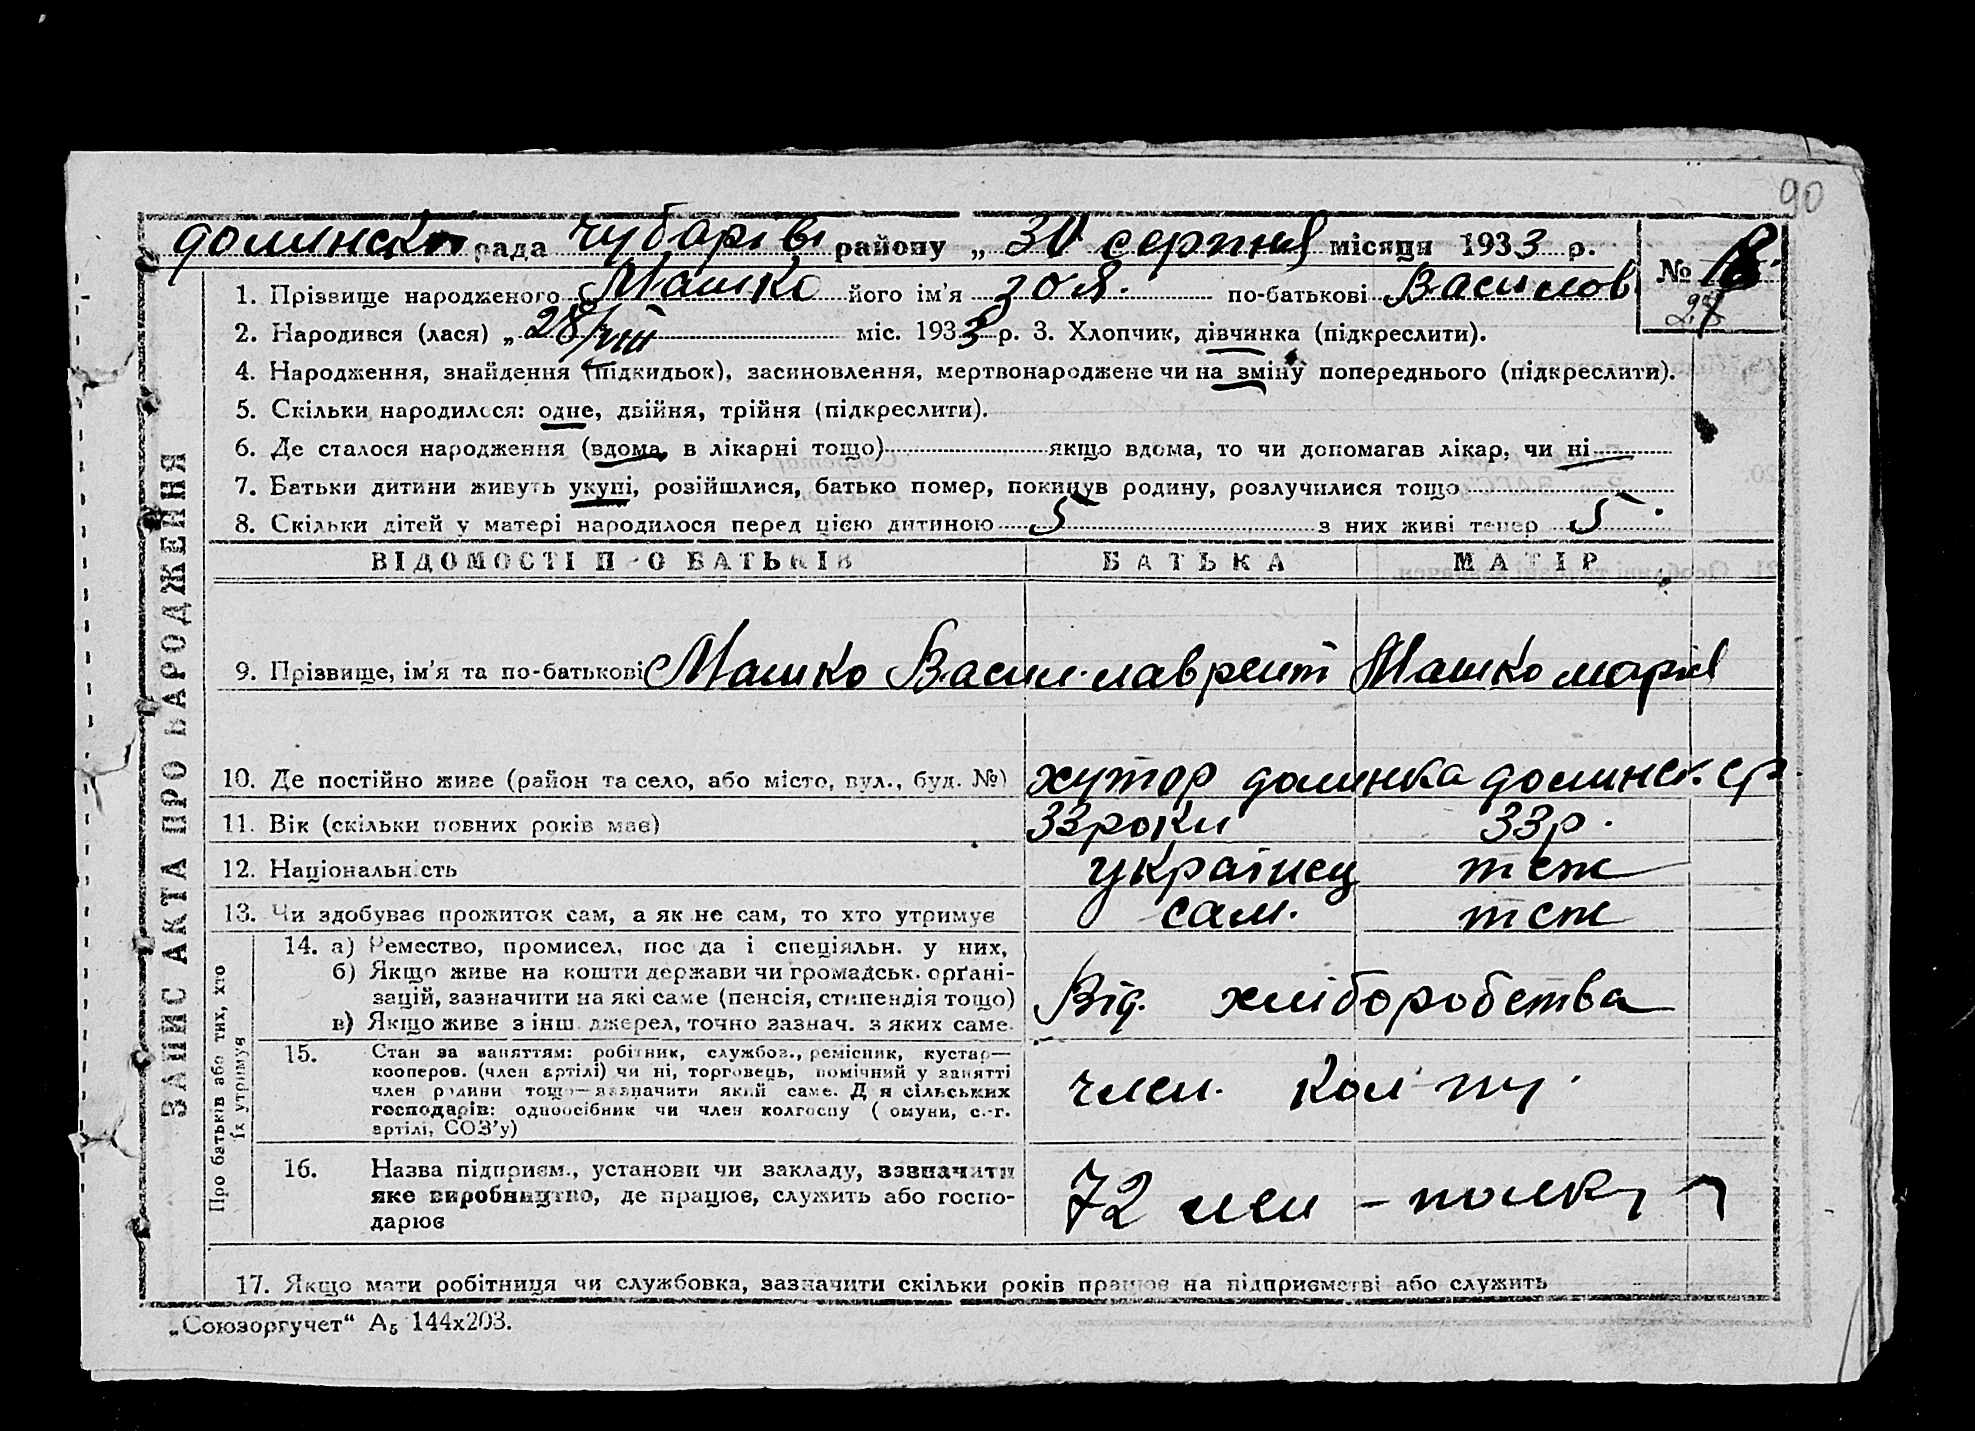 90
долинська рада чубарів району „ 30 серпня місяця 1933 р.
№ 18
1. Прізвище народженого Машко його ім'я зоя. по-батькові Васи лов
2. Народився (лася) „ 28/VIII міс. 1933 р. 3. Хлопчик, дівчинка (підкреслити).
4. Народження, знайдення (підкидьок), засиновлення, мертвонароджене чи на зміну попереднього (підкреслити).
5. Скільки народилося: одне, двійня, трійня (підкреслити).
6. Де сталося народження (вдома, в лікарні тощо) якщо вдома, то чи допомагав лікар, чи ні
7. Батьки дитини живуть укупі, розійшлися, батько помер, покинув родину, розлучилися тощо
8. Скільки дітей у матері народилося перед цією дитиною 5 з них живі тепер 5.
ВІДОМОСТІ ПРО БАТЬКІВ БАТЬКА МАТІР
9. Прізвище, ім'я та по-батькові Машко Васил. лаврент Машко марія
10. Де постійно живе (район та село, або місто, вул., буд. №) хутор долинка долинс. ср
11. Вік (скільки повних років має) 33 роки 33 р.
12. Національність українец теж
13. Чи здобуває прожиток сам, а як не сам, то хто утримує сам. теж
14. а) Ремество, промисел, посада і спеціяльн. у них,
б) Якщо живе на кошти держави чи громадськ. орґані-
зацій, зазначити на які саме (пенсія, стипендія тощо)
в) Якщо живе з інш. джерел, точно зазнач. з яких саме.
Від. хліборобства
15. Стан за заняттям: робітник, службов., ремісник, кустар—
кооперов. (член артілі) чи ні, торговець, помічний у занятті
член родини тощо—зазначити який саме. Для сільських
господарів: одноосібник чи член колгоспу (комуни, с.-г.
артілі, СОЗ'у)
член. кол
16. Назва підприєм., установи чи закладу, зазначити
яке виробництво, де працює, служить або госпо-
дарює
72
17. Якщо мати робітниця чи службовка, зазначити скільки років працює на підприємстві або служить
ЗАПИС АКТА ПРО НАРОДЖЕННЯ
Про батьків або тих, хто
їх утримує
„Союзоргучет" А5 144х203.